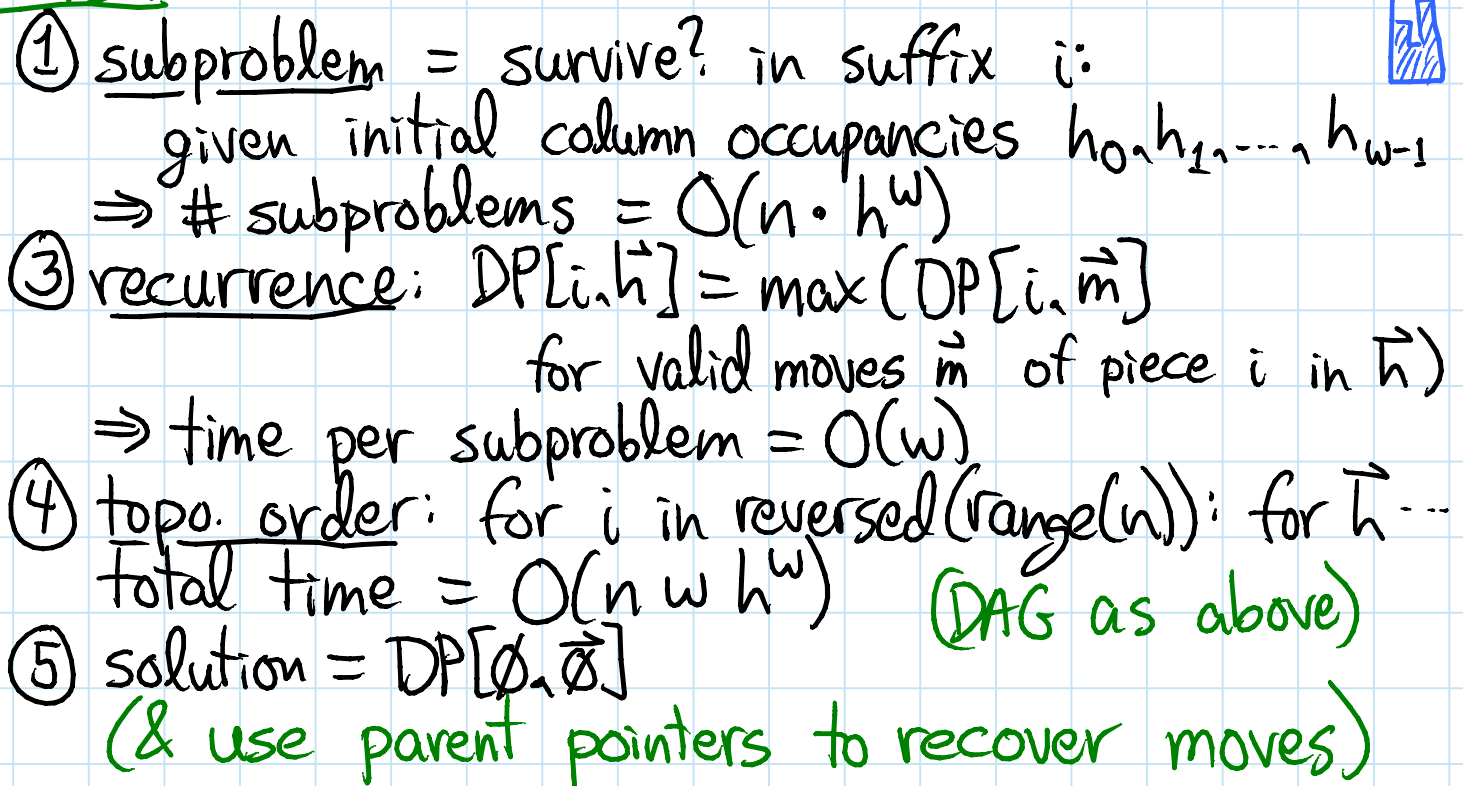 ① subproblem = survive? in suffix i:
given initial column occupancies h₀, h₁, ..., h_{w-1}
⇒ # subproblems = O(n · h^w)
③ recurrence: DP[i, h⃗] = max(DP[i, m⃗]
for valid moves m⃗ of piece i in h⃗)
⇒ time per subproblem = O(w)
④ topo. order: for i in reversed(range(n)): for h⃗ ...
total time = O(n w h^w) (DAG as above)
⑤ solution = DP[0, 0⃗]
(& use parent pointers to recover moves)